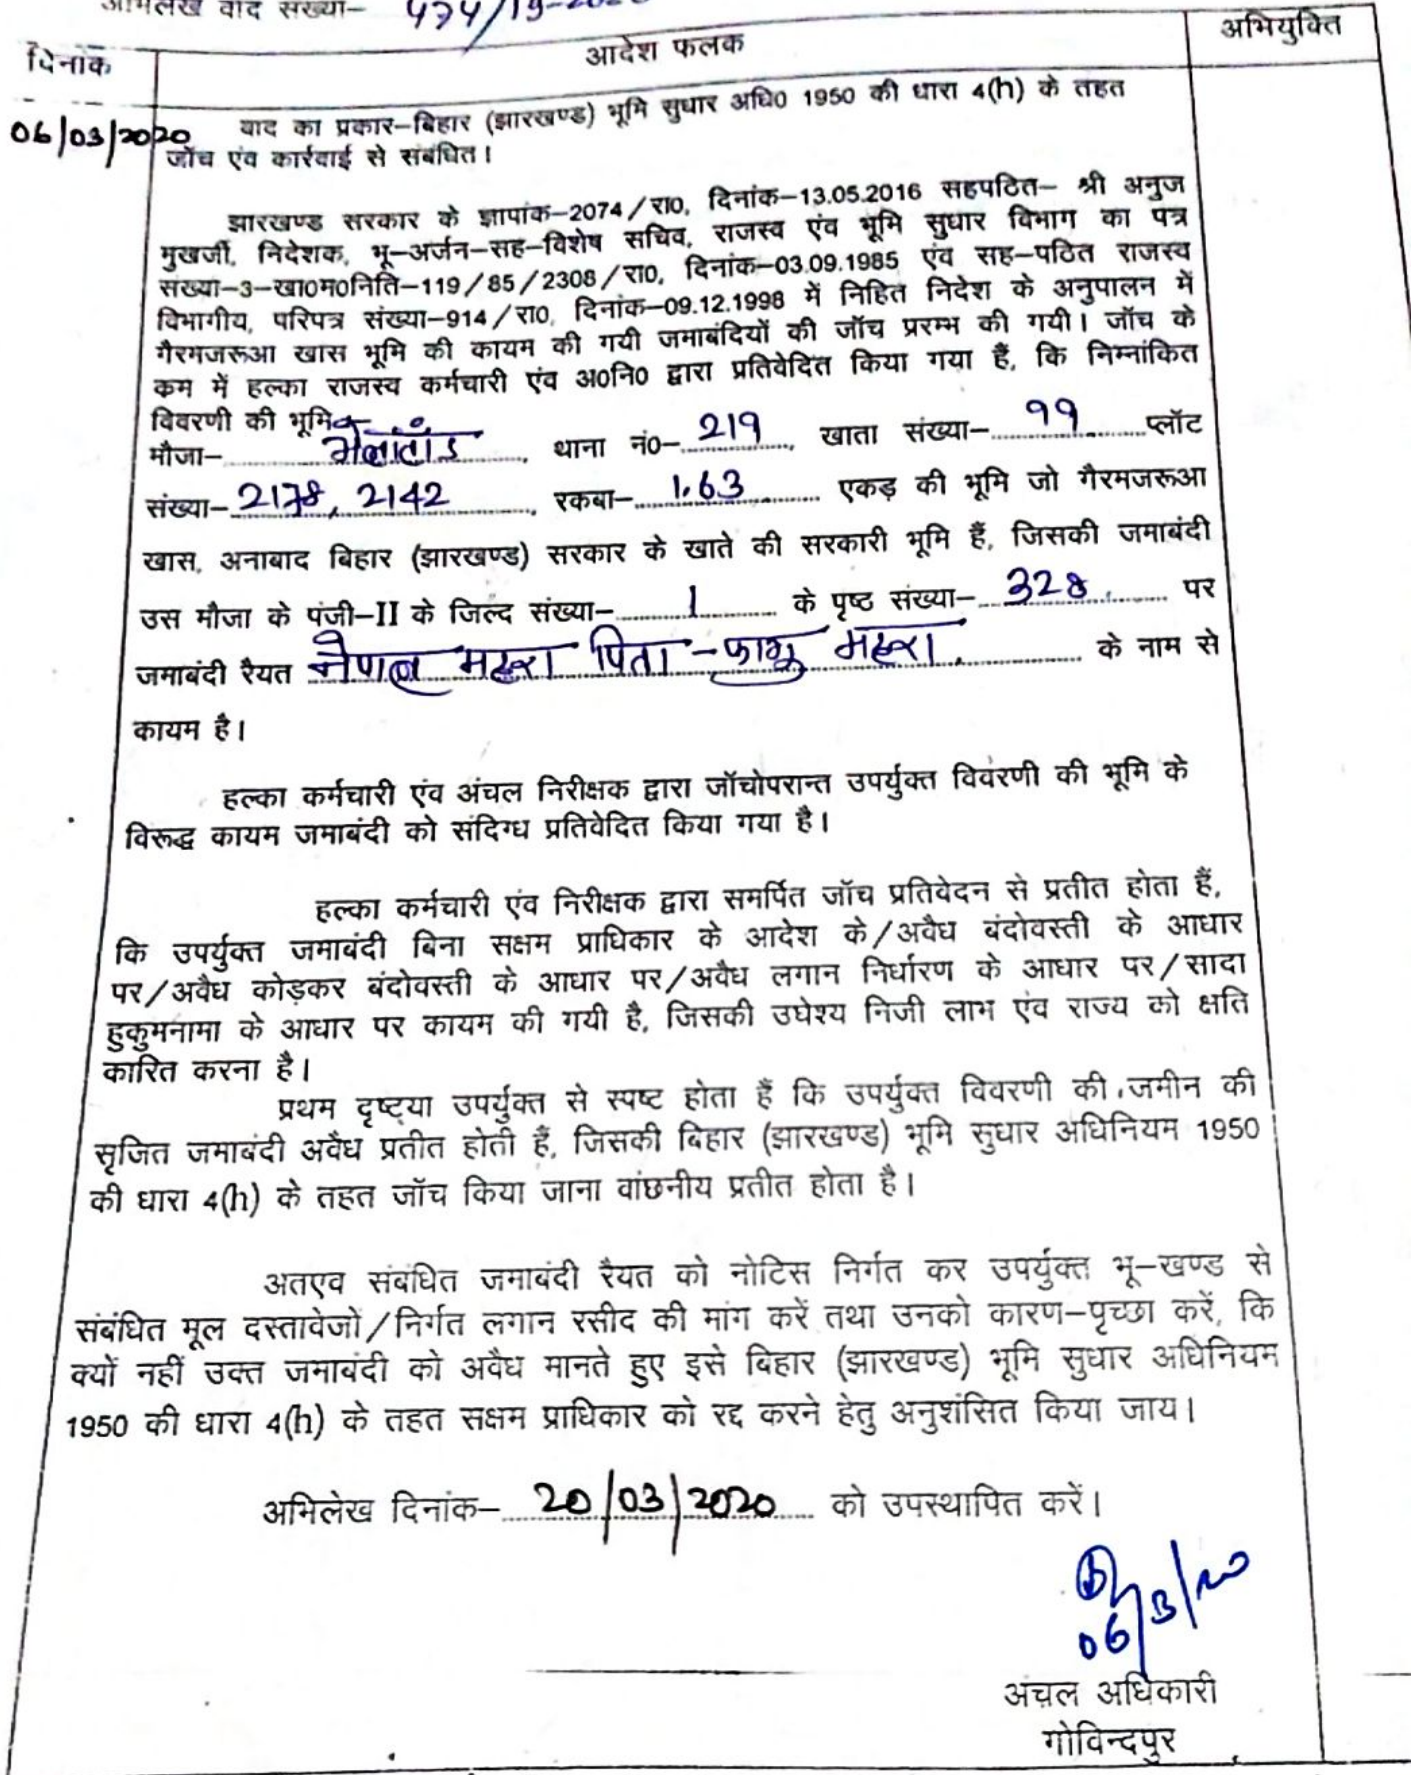 अभिलेख वाद संख्या- 474/19-20
दिनांक
आदेश फलक
अभियुक्ति
06/03/2020
वाद का प्रकार-बिहार (झारखण्ड) भूमि सुधार अधि0 1950 की धारा 4(h) के तहत
जॉच एंव कार्रवाई से संबंधित।
झारखण्ड सरकार के ज्ञापांक-2074/रा0, दिनांक-13.05.2016 सहपठित- श्री अनुज
मुखर्जी, निदेशक, भू-अर्जन-सह-विशेष सचिव, राजस्व एंव भूमि सुधार विभाग का पत्र
संख्या-3-खा0म0निति-119/85/2308/रा0, दिनांक-03.09.1985 एंव सह-पठित राजस्व
विभागीय, परिपत्र संख्या-914/रा0, दिनांक-09.12.1998 में निहित निदेश के अनुपालन में
गैरमजरूआ खास भूमि की कायम की गयी जमाबंदियों की जॉच प्ररम्भ की गयी। जॉच के
कम में हल्का राजस्व कर्मचारी एंव अ0नि0 द्वारा प्रतिवेदित किया गया हैं, कि निम्नांकित
विवरणी की भूमि
मौजा- थाना नं0- 219, खाता संख्या- 99 प्लॉट
संख्या- 2178, 2142, रकबा- 1.63 एकड़ की भूमि जो गैरमजरूआ
खास, अनाबाद बिहार (झारखण्ड) सरकार के खाते की सरकारी भूमि हैं, जिसकी जमाबंदी
उस मौजा के पंजी-II के जिल्द संख्या- 1 के पृष्ठ संख्या- 328 पर
जमाबंदी रैयत नेपाल महरा पिता - फागू महरा के नाम से
कायम है।
हल्का कर्मचारी एंव अंचल निरीक्षक द्वारा जॉचोपरान्त उपर्युक्त विवरणी की भूमि के
विरूद्ध कायम जमाबंदी को संदिग्ध प्रतिवेदित किया गया है।
हल्का कर्मचारी एंव निरीक्षक द्वारा समर्पित जॉच प्रतिवेदन से प्रतीत होता हैं,
कि उपर्युक्त जमाबंदी बिना सक्षम प्राधिकार के आदेश के/अवैध बंदोवस्ती के आधार
पर/अवैध कोड़कर बंदोवस्ती के आधार पर/अवैध लगान निर्धारण के आधार पर/सादा
हुकुमनामा के आधार पर कायम की गयी है, जिसकी उघेश्य निजी लाभ एंव राज्य को क्षति
कारित करना है।
प्रथम दृष्ट्या उपर्युक्त से स्पष्ट होता हैं कि उपर्युक्त विवरणी की जमीन की
सृजित जमाबंदी अवैध प्रतीत होती हैं, जिसकी बिहार (झारखण्ड) भूमि सुधार अधिनियम 1950
की धारा 4(h) के तहत जॉच किया जाना वांछनीय प्रतीत होता है।
अतएव संबंधित जमाबंदी रैयत को नोटिस निर्गत कर उपर्युक्त भू-खण्ड से
संबंधित मूल दस्तावेजों/निर्गत लगान रसीद की मांग करें तथा उनको कारण-पृच्छा करें, कि
क्यों नहीं उक्त जमाबंदी को अवैध मानते हुए इसे बिहार (झारखण्ड) भूमि सुधार अधिनियम
1950 की धारा 4(h) के तहत सक्षम प्राधिकार को रद्द करने हेतु अनुशंसित किया जाय।
अभिलेख दिनांक- 20/03/2020 को उपस्थापित करें।
06/3/20
अंचल अधिकारी
गोविन्दपुर